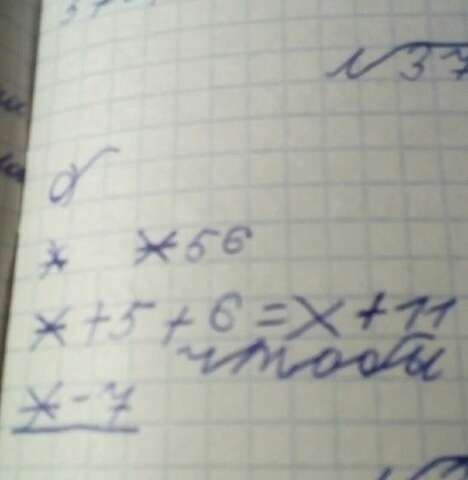 √37
б
* *56
*+5+6=x+11
чтобы
*-7